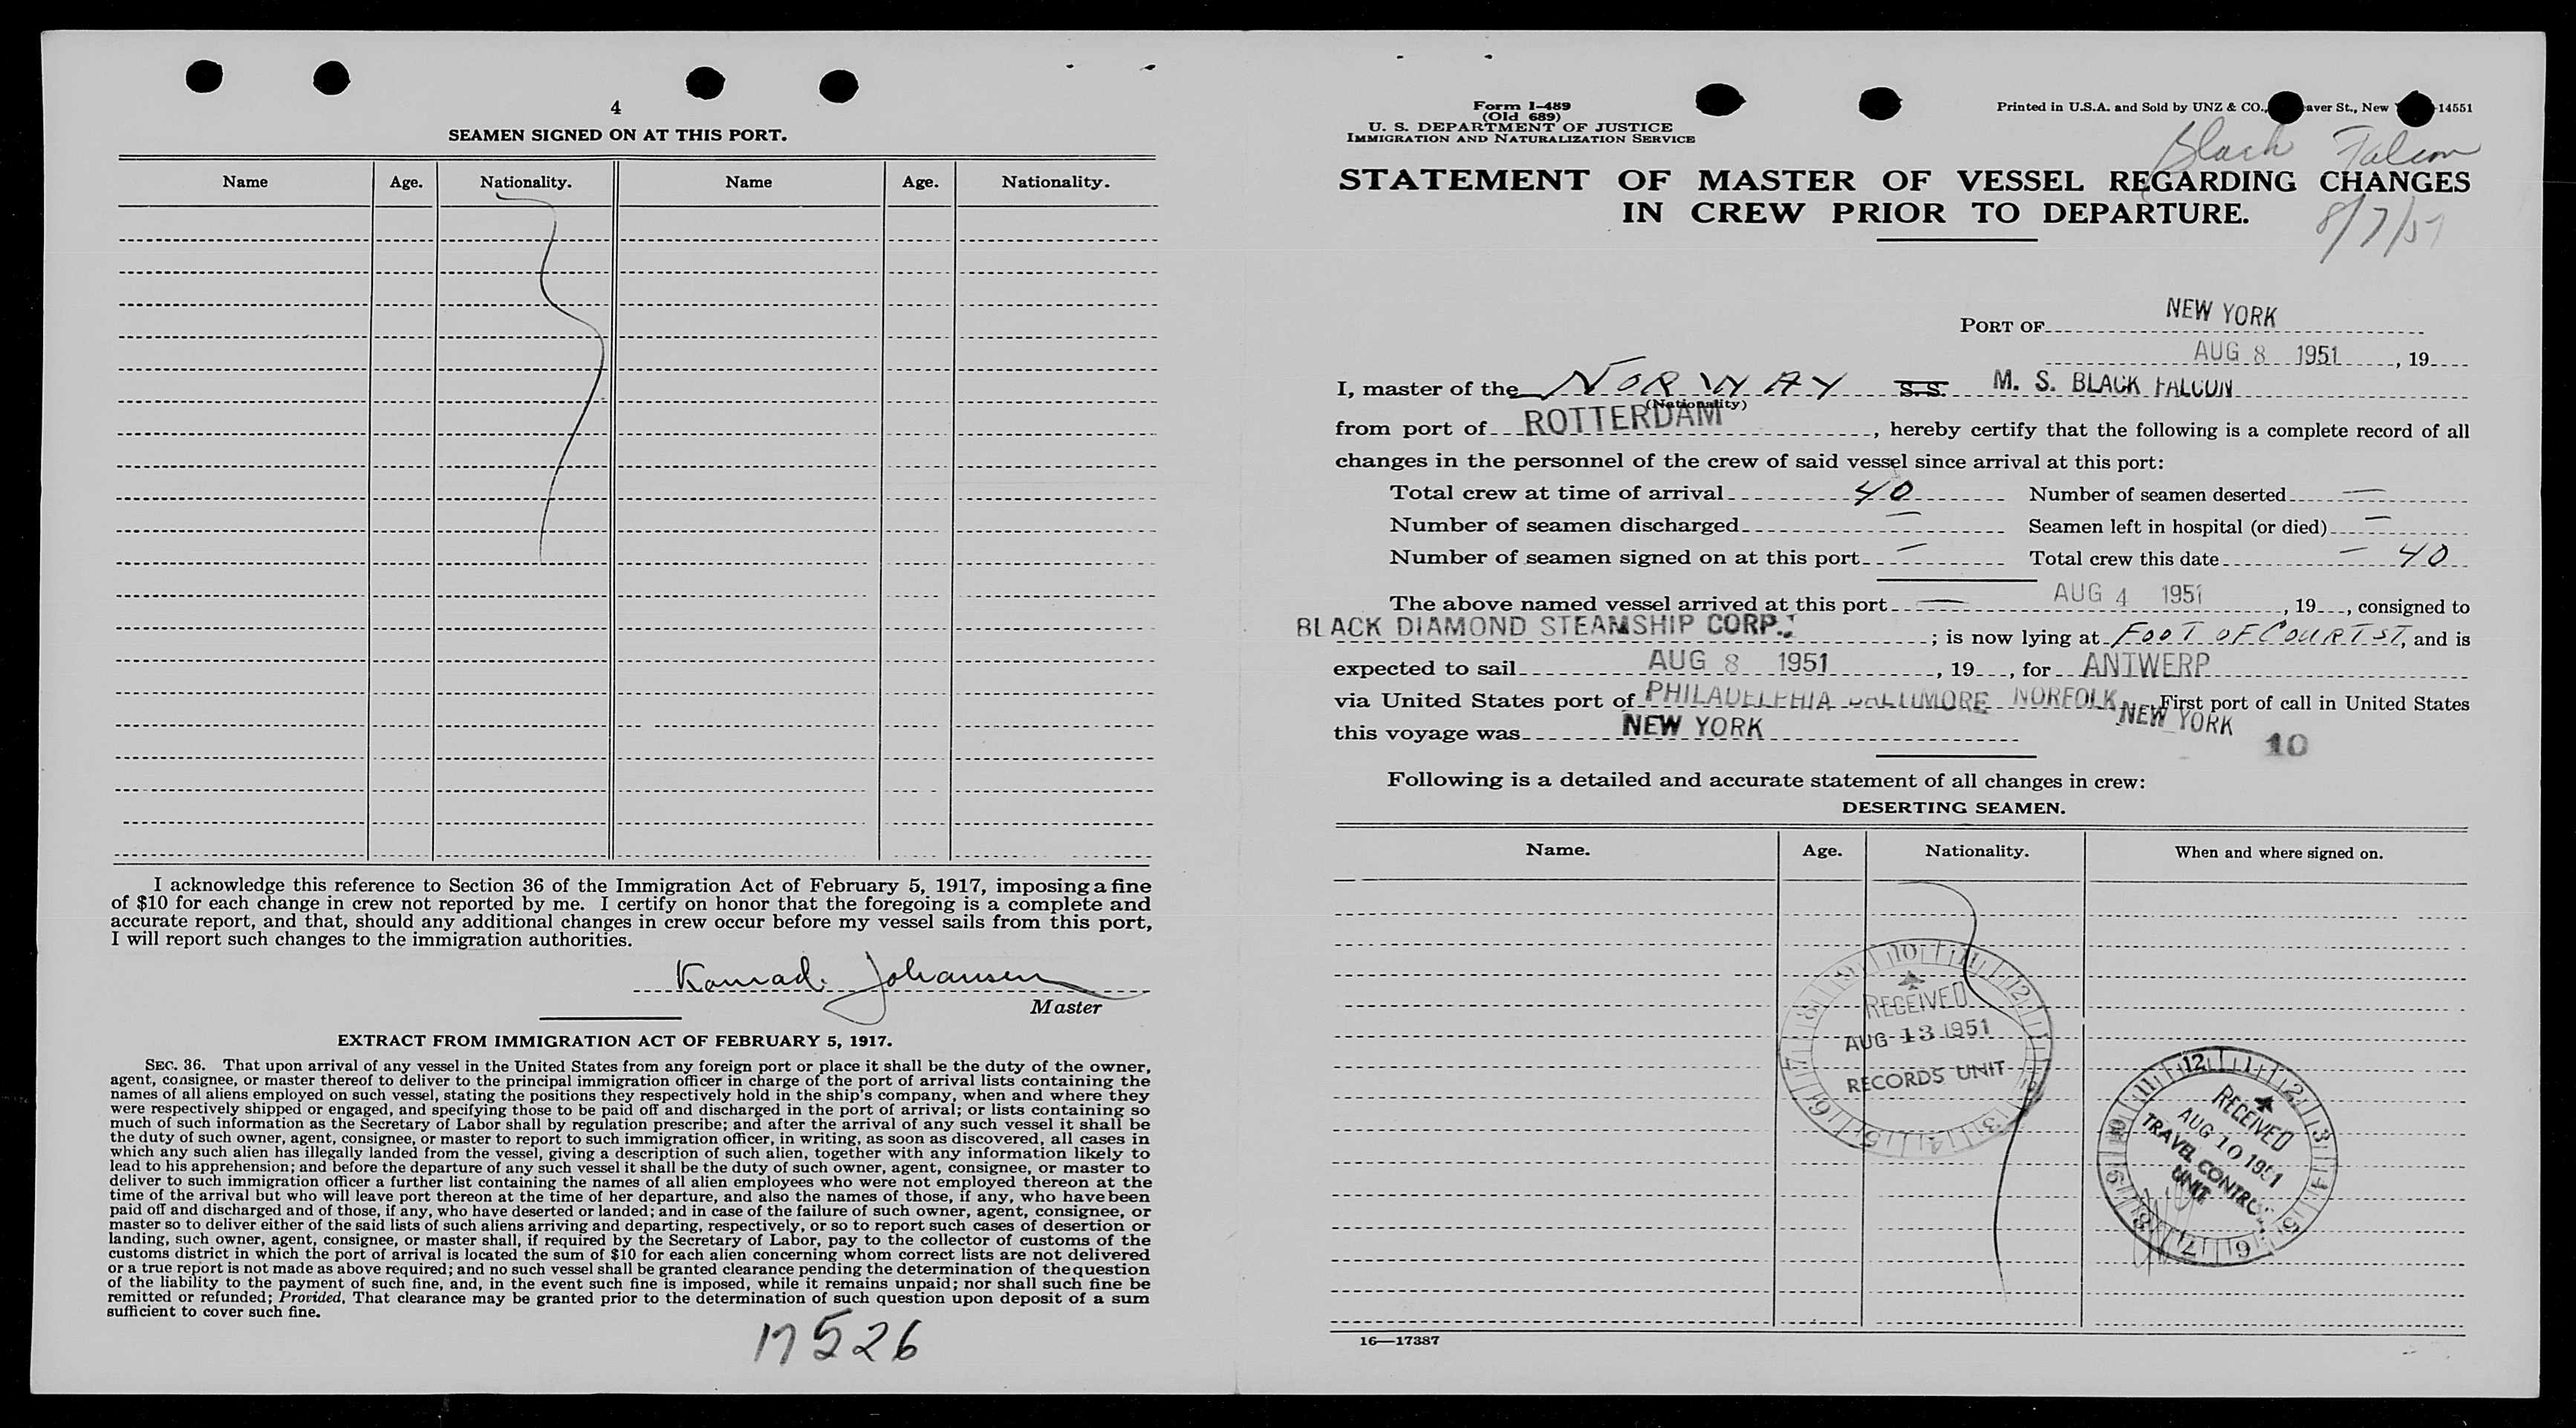 4
SEAMEN SIGNED ON AT THIS PORT.
Name Age. Nationality. Name Age. Nationality.
I acknowledge this reference to Section 36 of the Immigration Act of February 5, 1917, imposing a fine
of $10 for each change in crew not reported by me. I certify on honor that the foregoing is a complete and
accurate report, and that, should any additional changes in crew occur before my vessel sails from this port,
I will report such changes to the immigration authorities.
Konrad Johansen
Master
EXTRACT FROM IMMIGRATION ACT OF FEBRUARY 5, 1917.
SEC. 36. That upon arrival of any vessel in the United States from any foreign port or place it shall be the duty of the owner,
agent, consignee, or master thereof to deliver to the principal immigration officer in charge of the port of arrival lists containing the
names of all aliens employed on such vessel, stating the positions they respectively hold in the ship's company, when and where they
were respectively shipped or engaged, and specifying those to be paid off and discharged in the port of arrival; or lists containing so
much of such information as the Secretary of Labor shall by regulation prescribe; and after the arrival of any such vessel it shall be
the duty of such owner, agent, consignee, or master to report to such immigration officer, in writing, as soon as discovered, all cases in
which any such alien has illegally landed from the vessel, giving a description of such alien, together with any information likely to
lead to his apprehension; and before the departure of any such vessel it shall be the duty of such owner, agent, consignee, or master to
deliver to such immigration officer a further list containing the names of all alien employees who were not employed thereon at the
time of the arrival but who will leave port thereon at the time of her departure, and also the names of those, if any, who have been
paid off and discharged and of those, if any, who have deserted or landed; and in case of the failure of such owner, agent, consignee, or
master so to deliver either of the said lists of such aliens arriving and departing, respectively, or so to report such cases of desertion or
landing, such owner, agent, consignee, or master shall, if required by the Secretary of Labor, pay to the collector of customs of the
customs district in which the port of arrival is located the sum of $10 for each alien concerning whom correct lists are not delivered
or a true report is not made as above required; and no such vessel shall be granted clearance pending the determination of the question
of the liability to the payment of such fine, and, in the event such fine is imposed, while it remains unpaid; nor shall such fine be
remitted or refunded; Provided, That clearance may be granted prior to the determination of such question upon deposit of a sum
sufficient to cover such fine.
17526
Form I-489
(Old 689)
U. S. DEPARTMENT OF JUSTICE
IMMIGRATION AND NATURALIZATION SERVICE
Printed in U.S.A. and Sold by UNZ & CO., aver St., New 14551
Black Falcon
STATEMENT OF MASTER OF VESSEL REGARDING CHANGES
IN CREW PRIOR TO DEPARTURE.
8/7/51
PORT OF NEW YORK
AUG 8 1951, 19
I, master of the NORWAY S.S. M. S. BLACK FALCON
(Nationality)
from port of ROTTERDAM, hereby certify that the following is a complete record of all
changes in the personnel of the crew of said vessel since arrival at this port:
Total crew at time of arrival 40 Number of seamen deserted —
Number of seamen discharged — Seamen left in hospital (or died) —
Number of seamen signed on at this port — Total crew this date — 40
The above named vessel arrived at this port — AUG 4 1951, 19, consigned to
BLACK DIAMOND STEAMSHIP CORP.; is now lying at FOOT OF COURT ST, and is
expected to sail AUG 8 1951, 19, for ANTWERP
via United States port of PHILADELPHIA BALTIMORE NORFOLK NEW YORK First port of call in United States
this voyage was NEW YORK
10
Following is a detailed and accurate statement of all changes in crew:
DESERTING SEAMEN.
Name. Age. Nationality. When and where signed on.
10 11 12 1 2 3 4 5 6 7 8 9
RECEIVED
AUG 13 1951
RECORDS UNIT
12 1 2 3 4 5 6 7 8 9 10 11
RECEIVED
AUG 10 1951
TRAVEL CONTROL
UNIT
16—17387